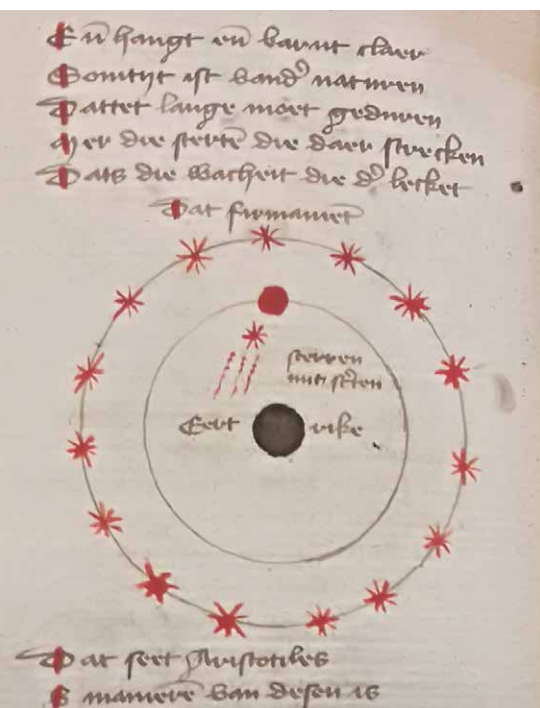 En̄ hangt en̄ barnt claer
Somtijt ist vand' naturen
Dattet lange moet geduren
Mer die stertē die daer strecken
Dats die wacheit die d'  lecket
Dat firmamēt
sterren
mit sterten
Eert rike
Dat seet Aristotiles
S manierē van desen is